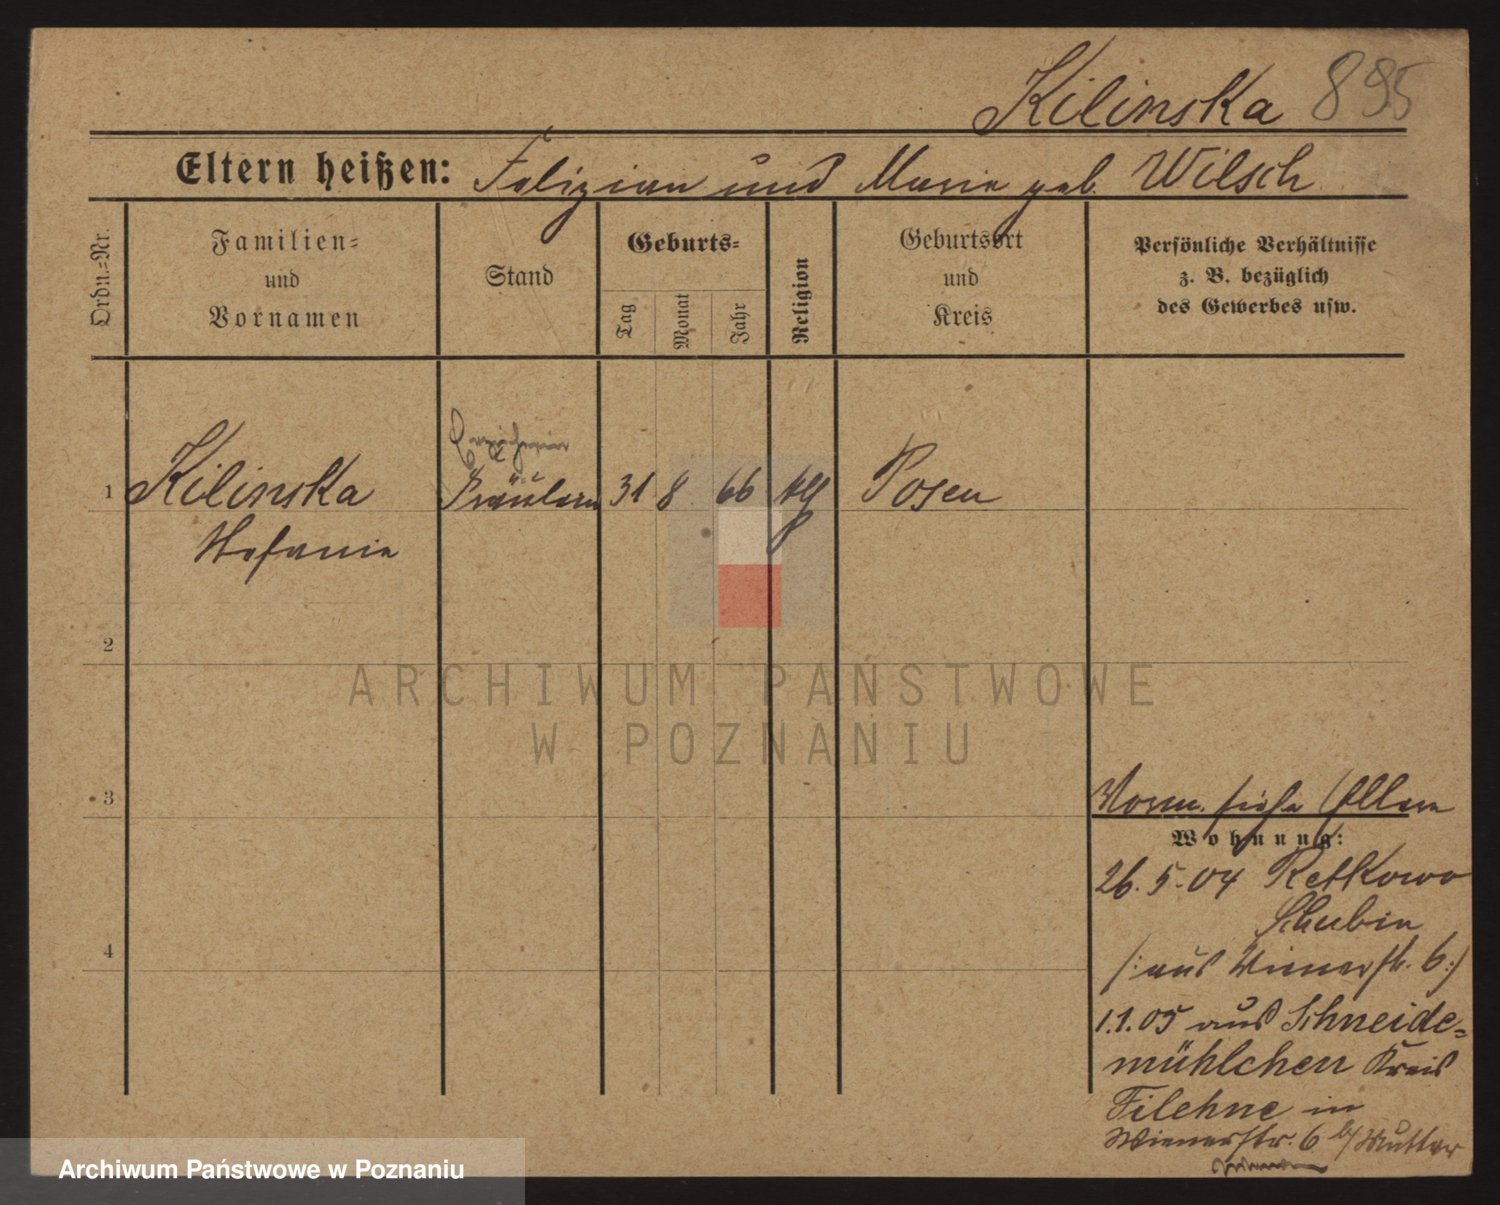 Kilinska 895
Eltern heißen: Felizian und Marie geb. Wilsch
Ordn.=Nr.
Familien=
und
Vornamen
Stand
Geburts=
Tag
Monat
Jahr
Religion
Geburtsort
und
Kreis
Persönliche Verhältnisse
z. B. bezüglich
des Gewerbes usw.
Erzieherin
1 Kilinska Fräulein 31 8 66 Posen
Stefanie
2
3
4
Vorm. siehe Eltern
Wohnung:
26.5.04 Retkowo
Schubin
/: aus Wienerstr. 6 :/
1.1.05 aus Schneide=
mühlchen Kreis
Filehne in
Wienerstr. 6 b/ Mutter
ARCHIWUM PAŃSTWOWE
W POZNANIU
Archiwum Państwowe w Poznaniu